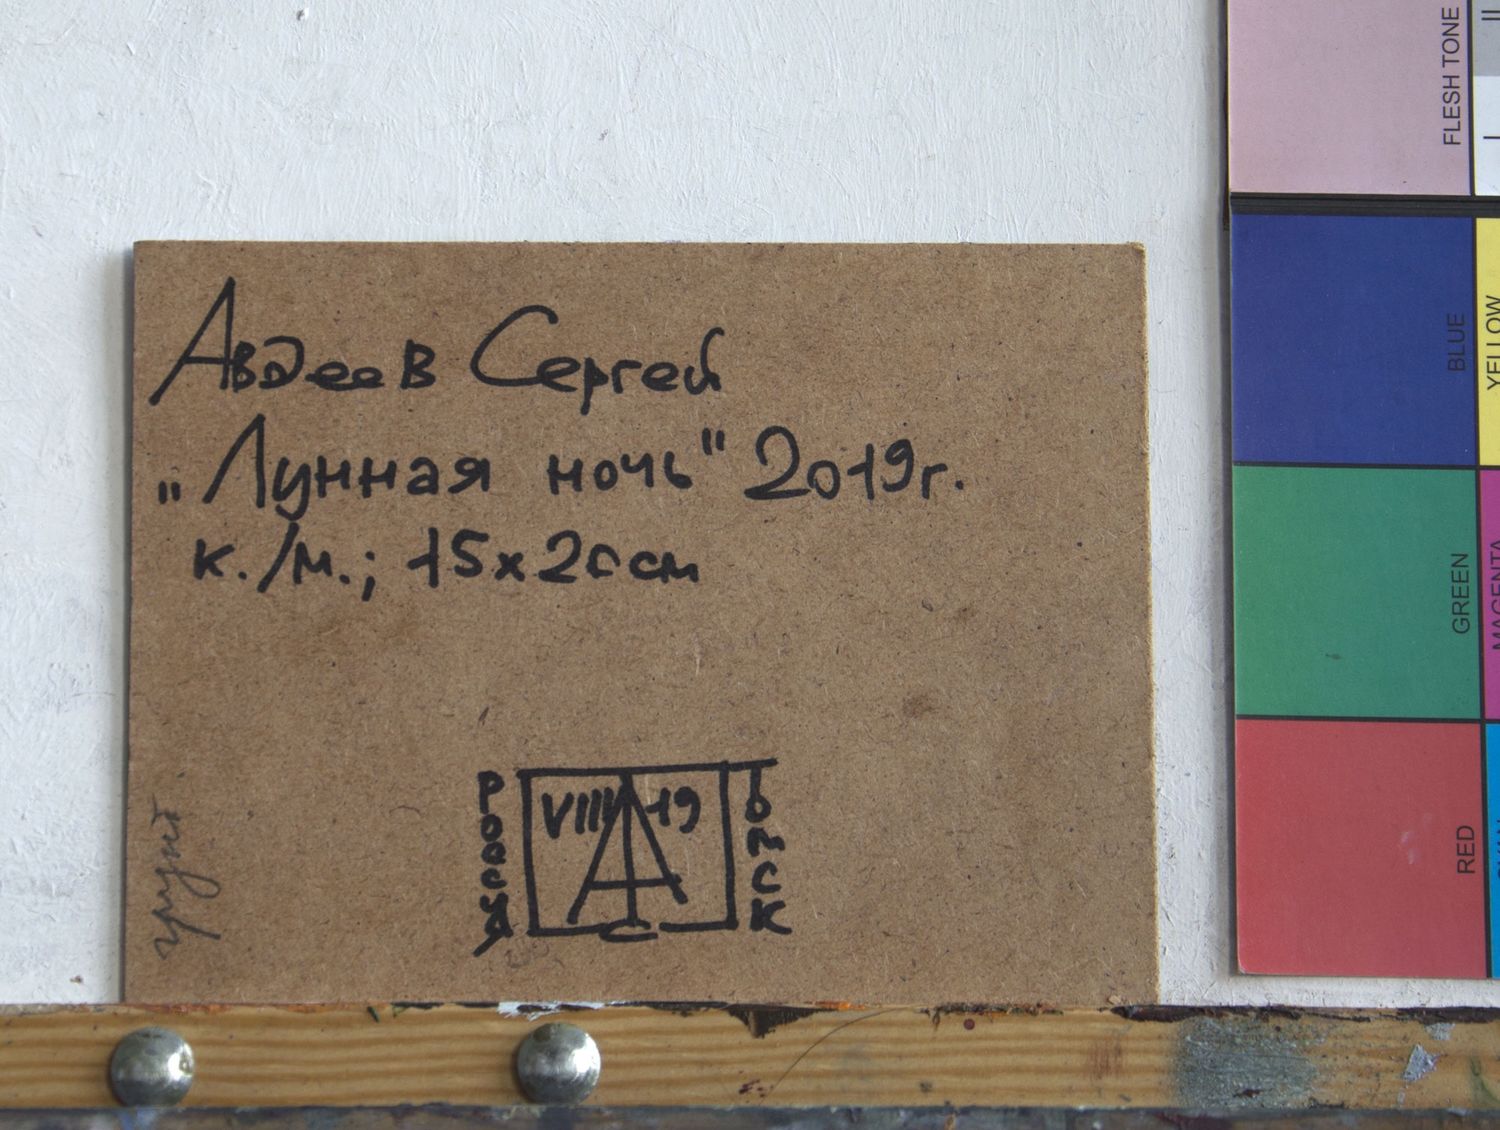 Авдеев Сергей
„Лунная ночь" 2019г.
к./м.; 15х20см
VIII 19
грунт
FLESH TONE
BLUE
YELLOW
GREEN
MAGENTA
RED